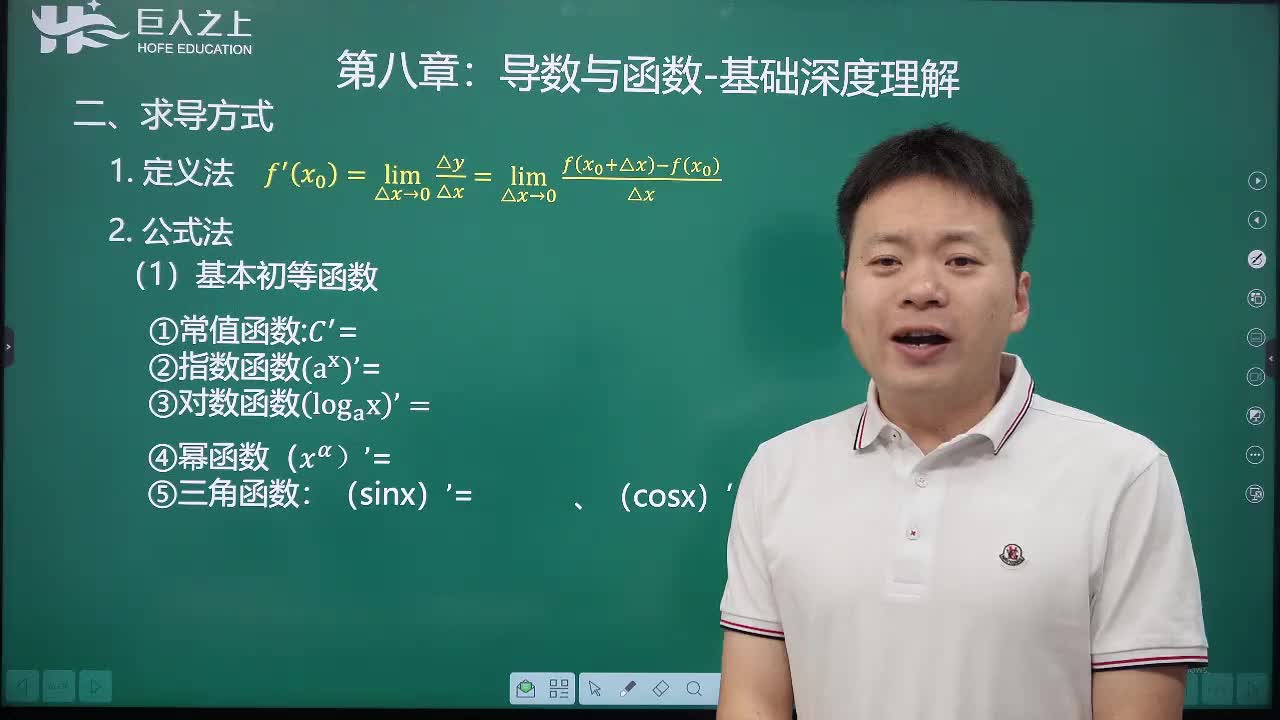 巨人之上
HOFE EDUCATION
第八章：导数与函数-基础深度理解
二、求导方式
1. 定义法 f′(x₀) = lim△x→0 △y/△x = lim△x→0 f(x₀+△x)−f(x₀)/△x
2. 公式法
（1）基本初等函数
①常值函数:C′=
②指数函数(aˣ)’=
③对数函数(logₐx)’ =
④幂函数（xᵅ）’=
⑤三角函数：（sinx）’= 、（cosx）‘